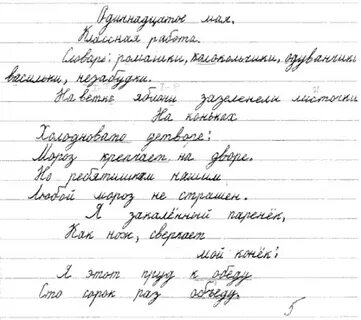 Одиннадцатое мая.
Классная работа.
Словарь: ромашки, колокольчики, одуванчики
васильки, незабудки.
На ветке яблони зазеленели листочки
На коньках
Холодновато детворе:
Мороз крепчает на дворе.
Но ребятишкам нашим
Любой мороз не страшен.
Я закалённый паренёк,
Как нож, сверкает
мой конёк!
Я этот пруд к обеду
Сто сорок раз объеду.
5